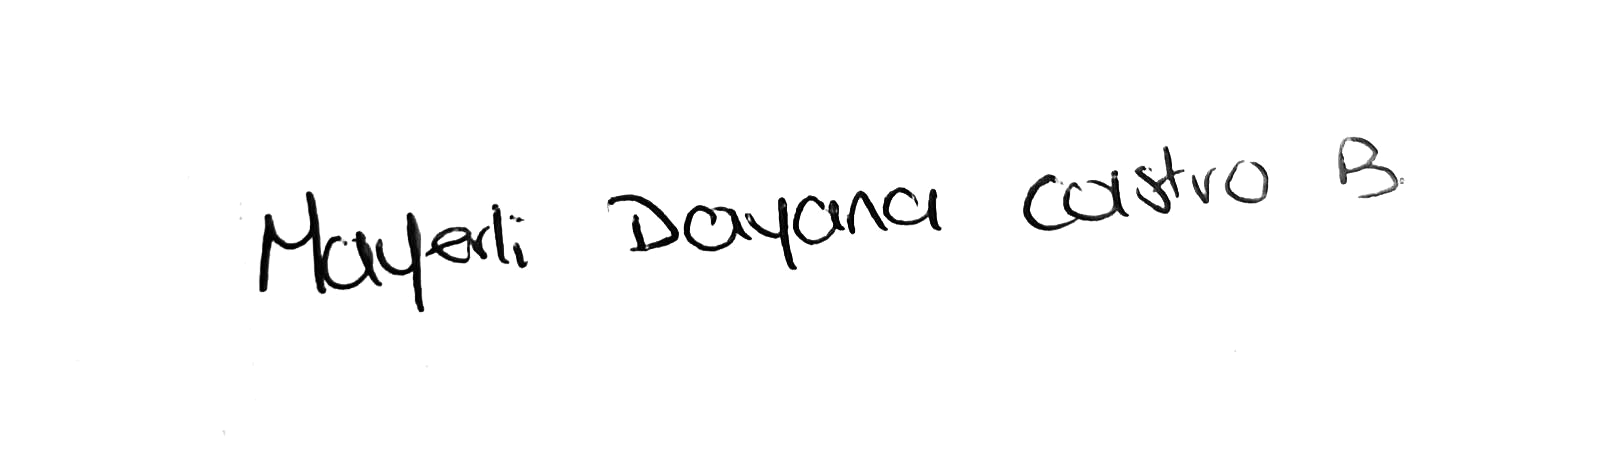 Mayerli Dayana Castro B.